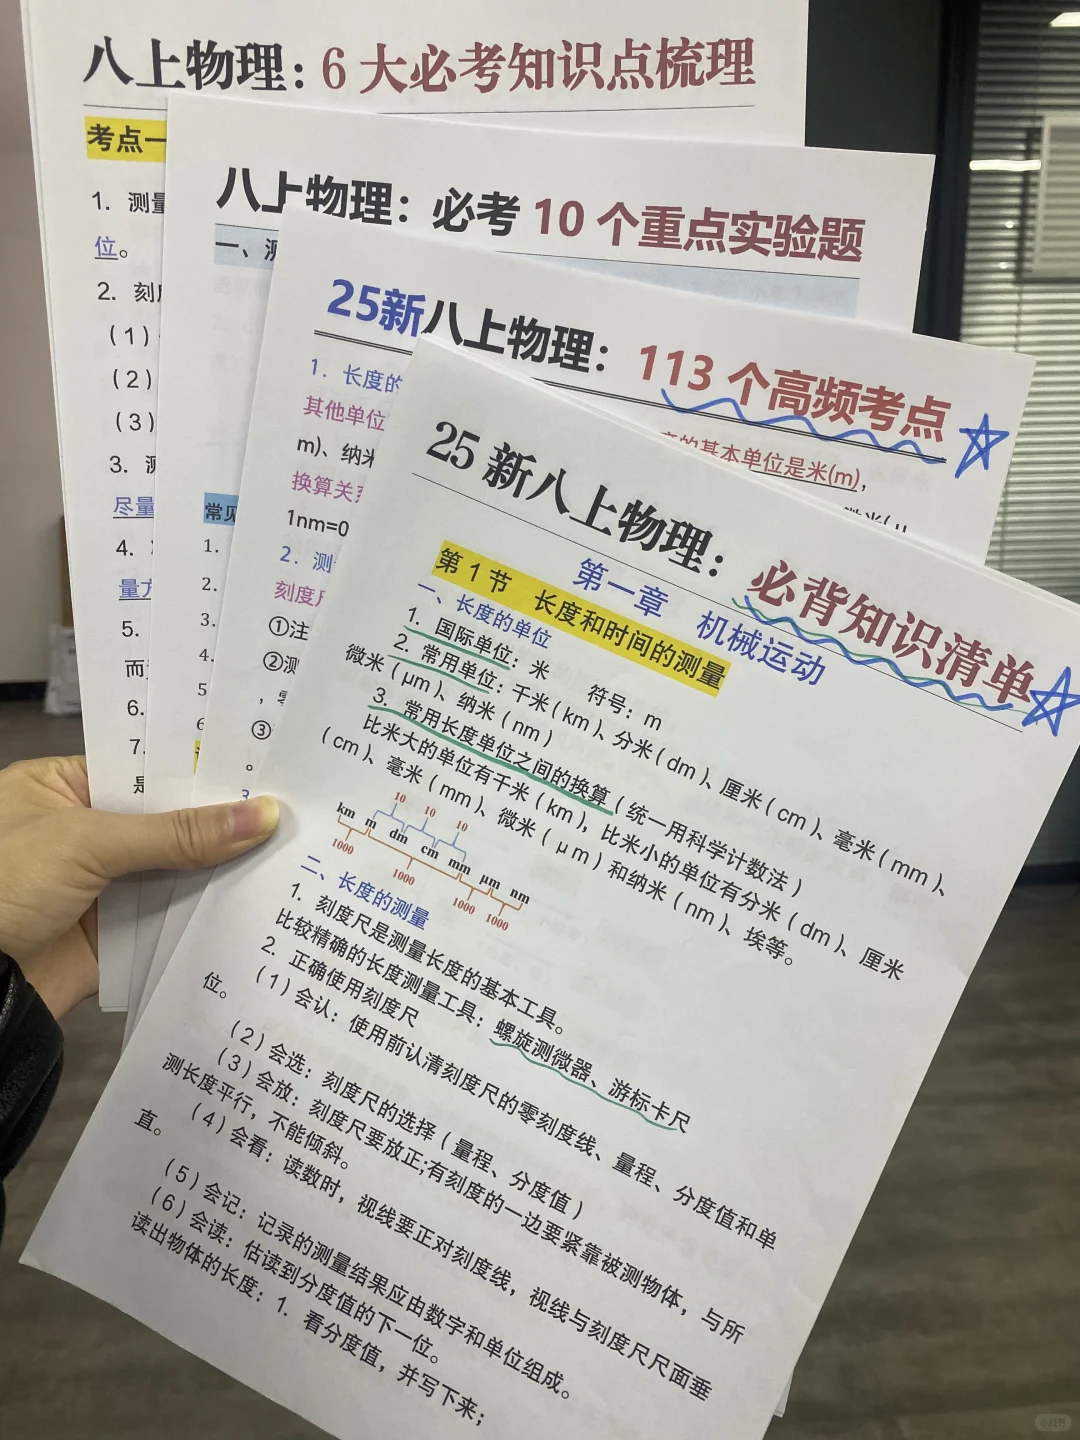 八上物理：6大必考知识点梳理
考点一
1. 测量
位。
2. 刻
(1)
(2)
(3)
3.
尽量
4.
量方
5.
而
6.
7.
是
八上物理：必考10个重点实验题
一、测
常见
1.
2.
3.
4.
5
6
25新八上物理：113个高频考点
1. 长度的
的基本单位是米(m)，
其他单位
m)、纳米
换算关系
1nm=0
2. 测
刻度尺
①注
②测
，零
③
。
3
25新八上物理：必背知识清单
第一章 机械运动
第1节 长度和时间的测量
一、长度的单位
1. 国际单位：米 符号：m
2. 常用单位：千米(km)、分米(dm)、厘米(cm)、毫米(mm)、
微米(μm)、纳米(nm)
3. 常用长度单位之间的换算(统一用科学计数法)
比米大的单位有千米(km)，比米小的单位有分米(dm)、厘米
(cm)、毫米(mm)、微米(μm)和纳米(nm)、埃等。
10 10 10
km m dm cm mm μm nm
1000 1000 1000 1000
二、长度的测量
1. 刻度尺是测量长度的基本工具。
比较精确的长度测量工具：螺旋测微器、游标卡尺
2. 正确使用刻度尺
(1)会认：使用前认清刻度尺的零刻度线、量程、分度值和单
位。
(2)会选：刻度尺的选择(量程、分度值)
(3)会放：刻度尺要放正;有刻度的一边要紧靠被测物体，与所
测长度平行，不能倾斜。
(4)会看：读数时，视线要正对刻度线，视线与刻度尺尺面垂
直。
(5)会记：记录的测量结果应由数字和单位组成。
(6)会读：估读到分度值的下一位。
读出物体的长度：1. 看分度值，并写下来；
小红书